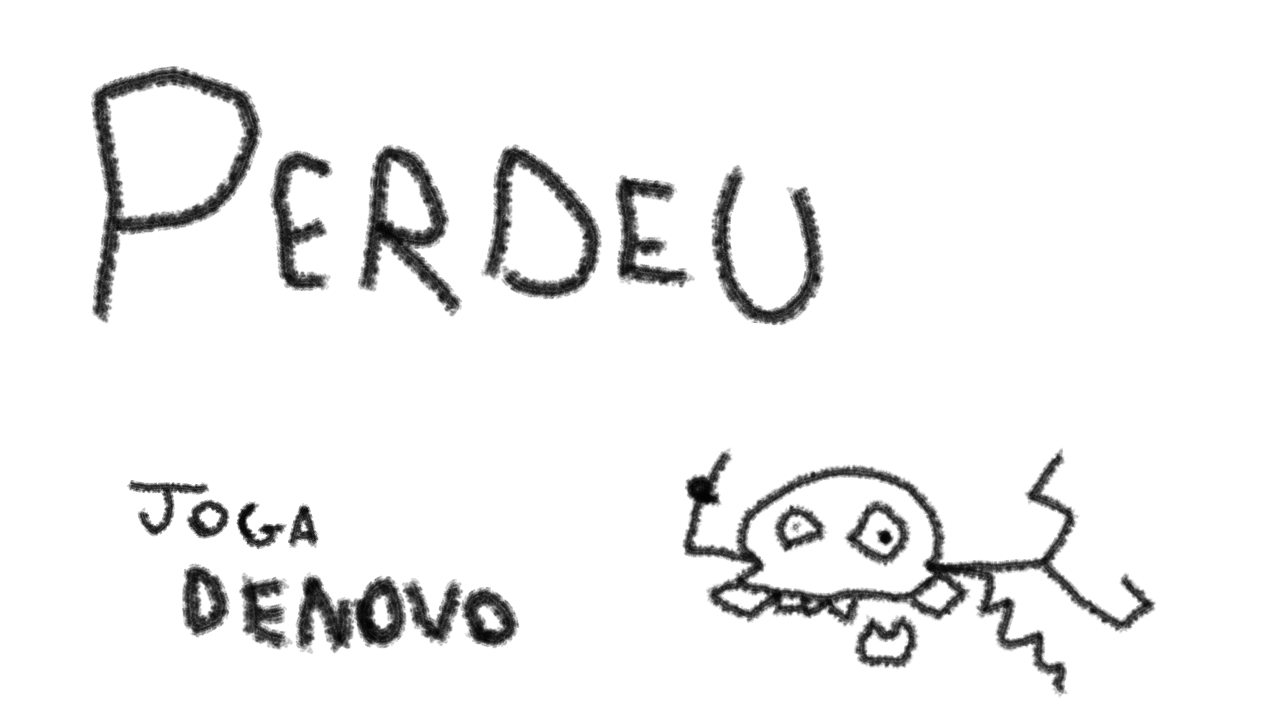 PERDEU
JOGA
DENOVO